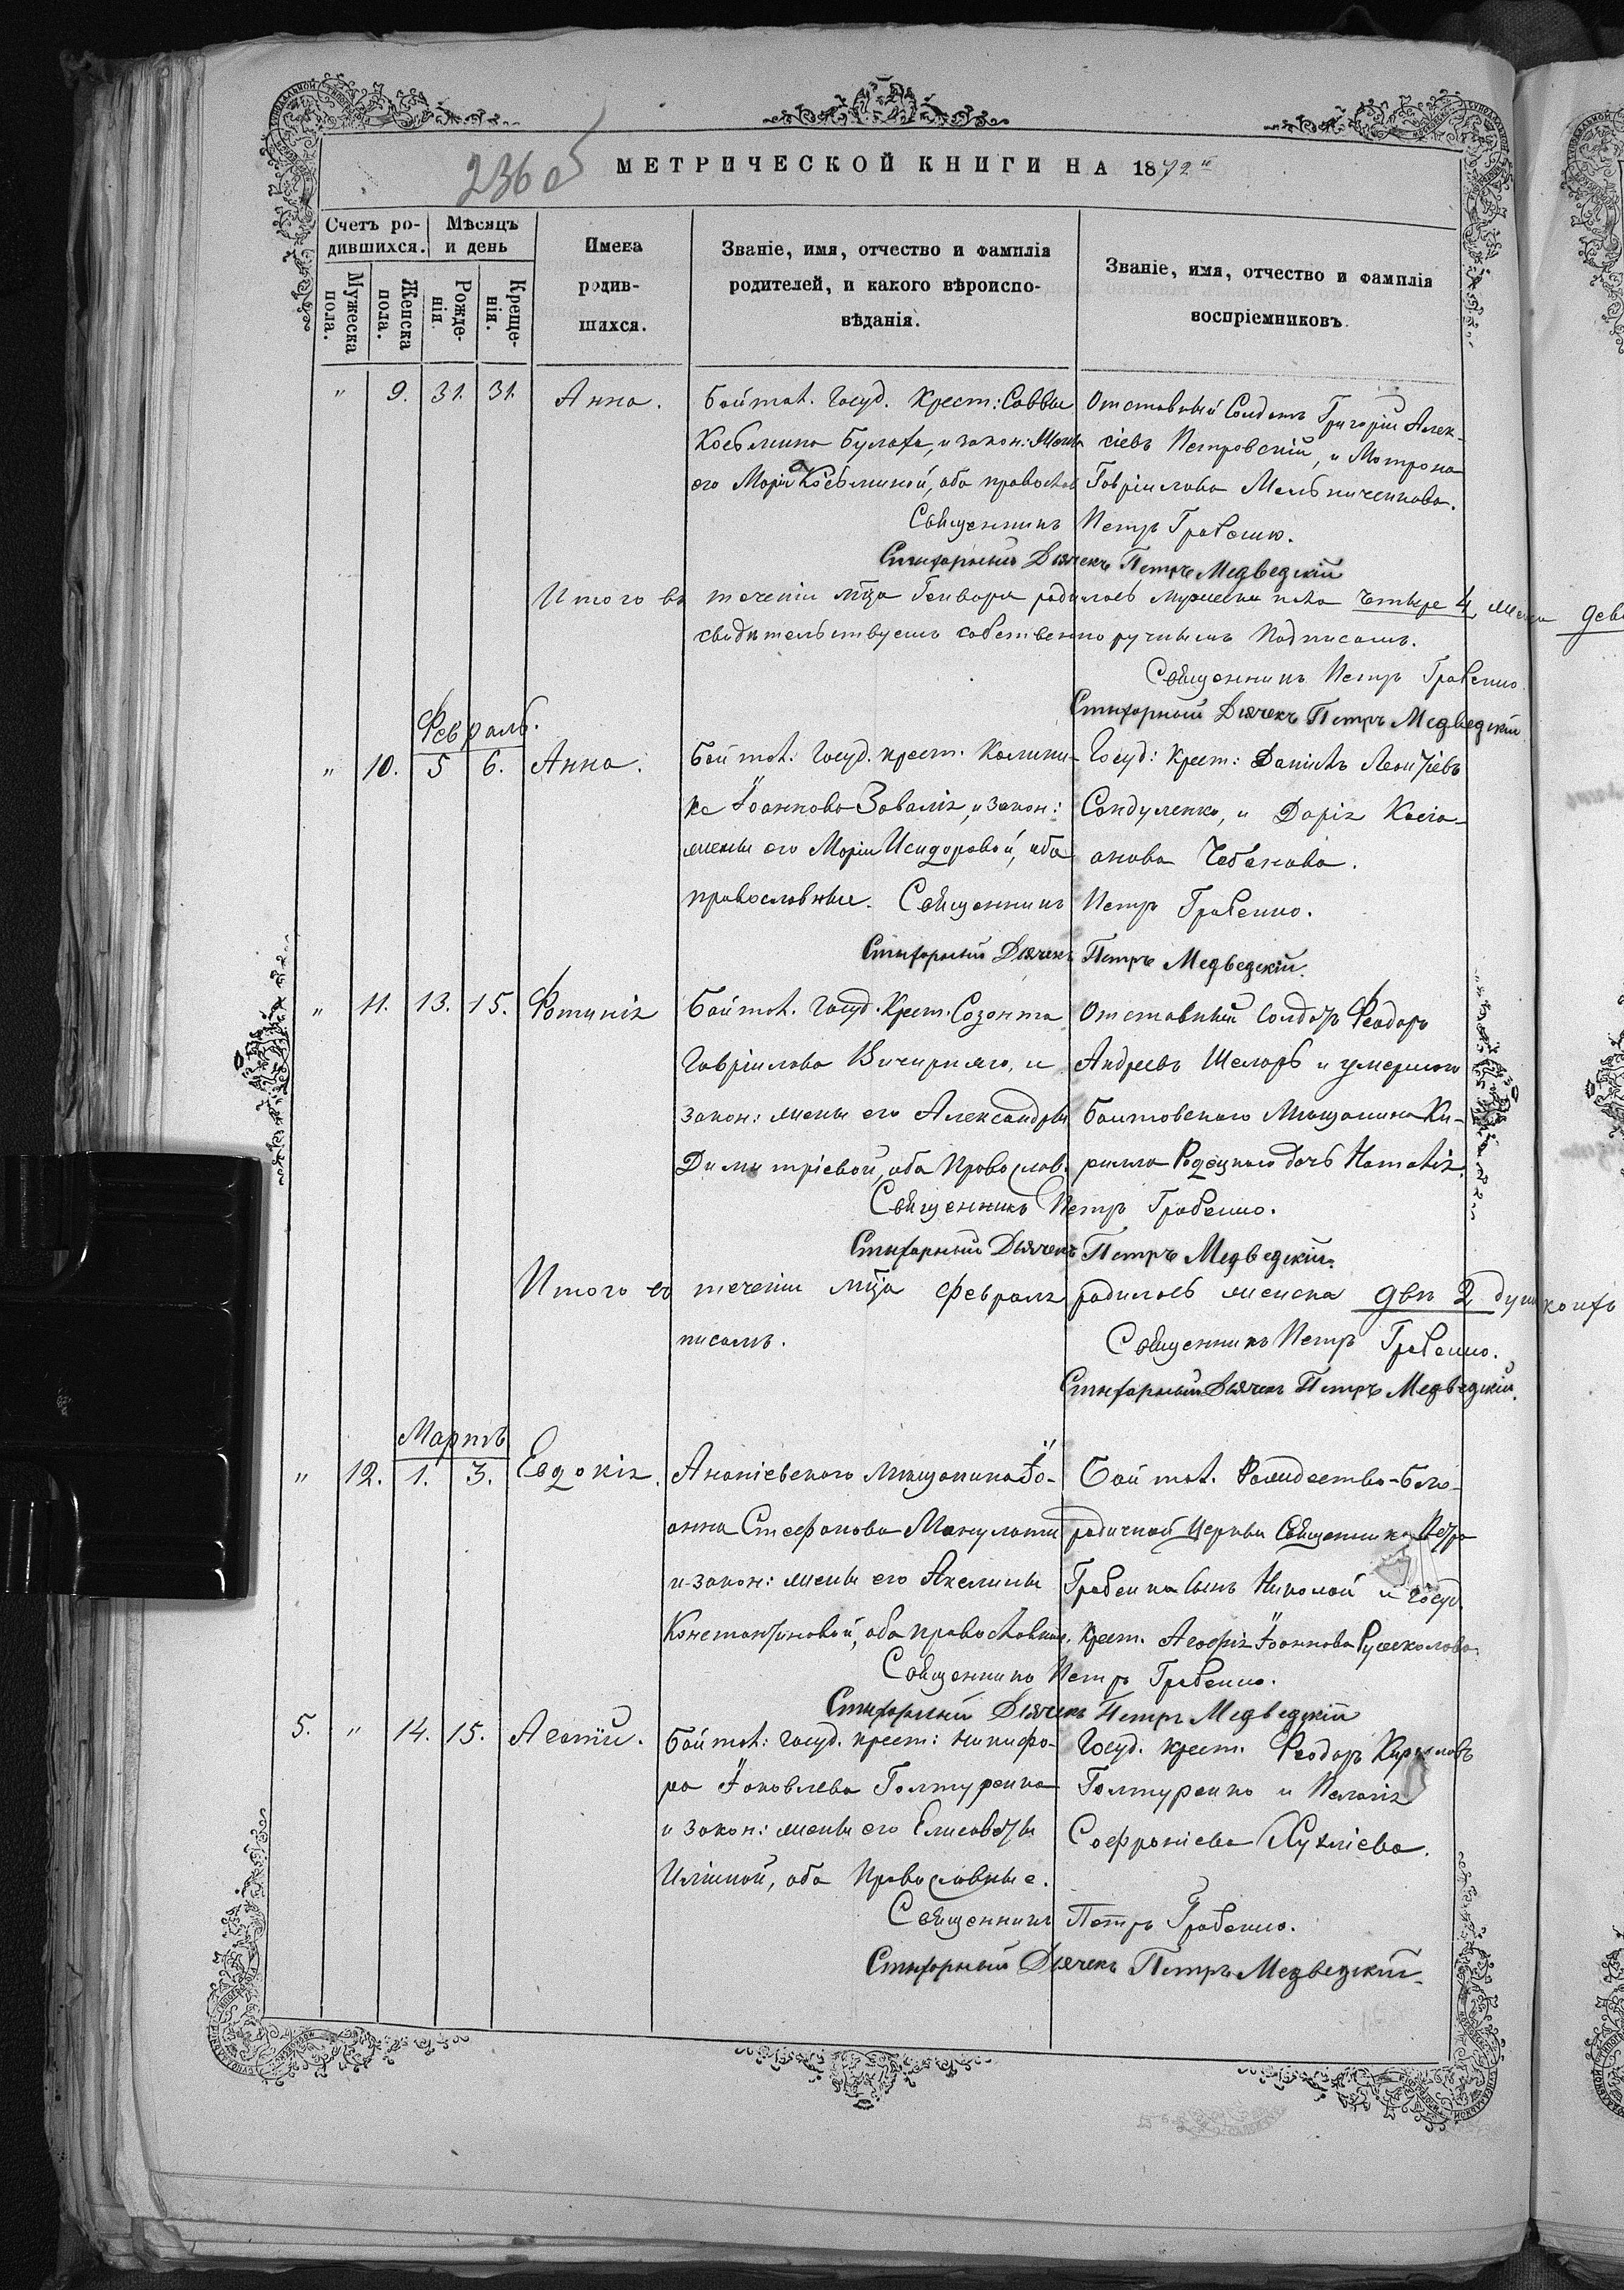 236 об
МЕТРИЧЕСКОЙ КНИГИ НА 1872
Счетъ ро-
дившихся.
Мужеска
пола.
Женска
пола.
Мѣсяцъ
и день
Рожде-
нія.
Креще-
нія.
Имена
родив-
шихся.
Званіе, имя, отчество и фамилія
родителей, и какого вѣроиспо-
вѣданія.
Званіе, имя, отчество и фамилія
воспріемниковъ.
" 9. 31. 31. Анна.
Бойтал. Госуд. Крест: Саввы
Косьмина Булаха, и закон: жены
его Маріи Косьминой, оба православ
Отставный Солдатъ Григорій Алек-
сіевъ Петровскій, и Матрона
Гавріилова Мельниченкова.
Священникъ Петръ Гребенко.
Стихарный Дьячекъ Петръ Медведскій
Итого въ теченіи мца Генваря родилось мужеска пола четыре 4, женска
свидѣтельствуемъ собственноручнымъ подписомъ.
Священникъ Петръ Гребенко.
Стихарный Дьячекъ Петръ Медведскій
Февраль.
" 10. 5 6. Анна.
Бойтал. Госуд. крест. Калини-
ка Іоаннова Завалія, и закон:
жены его Маріи Исидоровой, оба
православные.
Госуд: Крест: Даніилъ Леонтіевъ
Сандуленко, и Дарія Касіа-
нова Чебанова.
Священникъ Петръ Гребенко.
Стихарный Дьячекъ Петръ Медведскій.
" 11. 13. 15. Фотинія
Бойтал. Госуд. Крест. Созонта
Гавріилова Вичирняго, и
закон: жены его Александры
Димитріевой, оба Православ.
Отставный Солдатъ Феодоръ
Андреевъ Шеларь и умершаго
Балтовскаго Мѣщанина Ки-
рилла Родецкаго дочь Наталія.
Священникъ Петръ Гребенко.
Стихарный Дьячекъ Петръ Медведскій.
Итого въ теченіи мца Февраля родилось женска двѣ 2 душ
писомъ.
Священникъ Петръ Гребенко.
Стихарный Дьячекъ Петръ Медведскій.
Мартъ
" 12. 1. 3. Евдокія.
Ананіевскаго Мѣщанина Іо-
анна Стефанова Манулати
и закон: жены его Акелины
Константиновой, оба православные.
Бойтал. Рождество-Бого-
родичной Церкви Священника Петра
Гребенка сынъ Николай и Госуд.
Крест. Агафія Іоаннова Русколова.
Священникъ Петръ Гребенко.
Стихарный Дьячекъ Петръ Медведскій
5. " 14. 15. Агапій.
Бойтал: Госуд. крест: Никифо-
ра Іаковлева Голтуренка
и закон: жены его Елисаветы
Иліиной, оба Православные.
Госуд. крест. Феодоръ Кириловъ
Голтуренко и Пелагія
Софроніева Кухліева.
Священникъ Петръ Гребенко.
Стихарный Дьячекъ Петръ Медведскій.